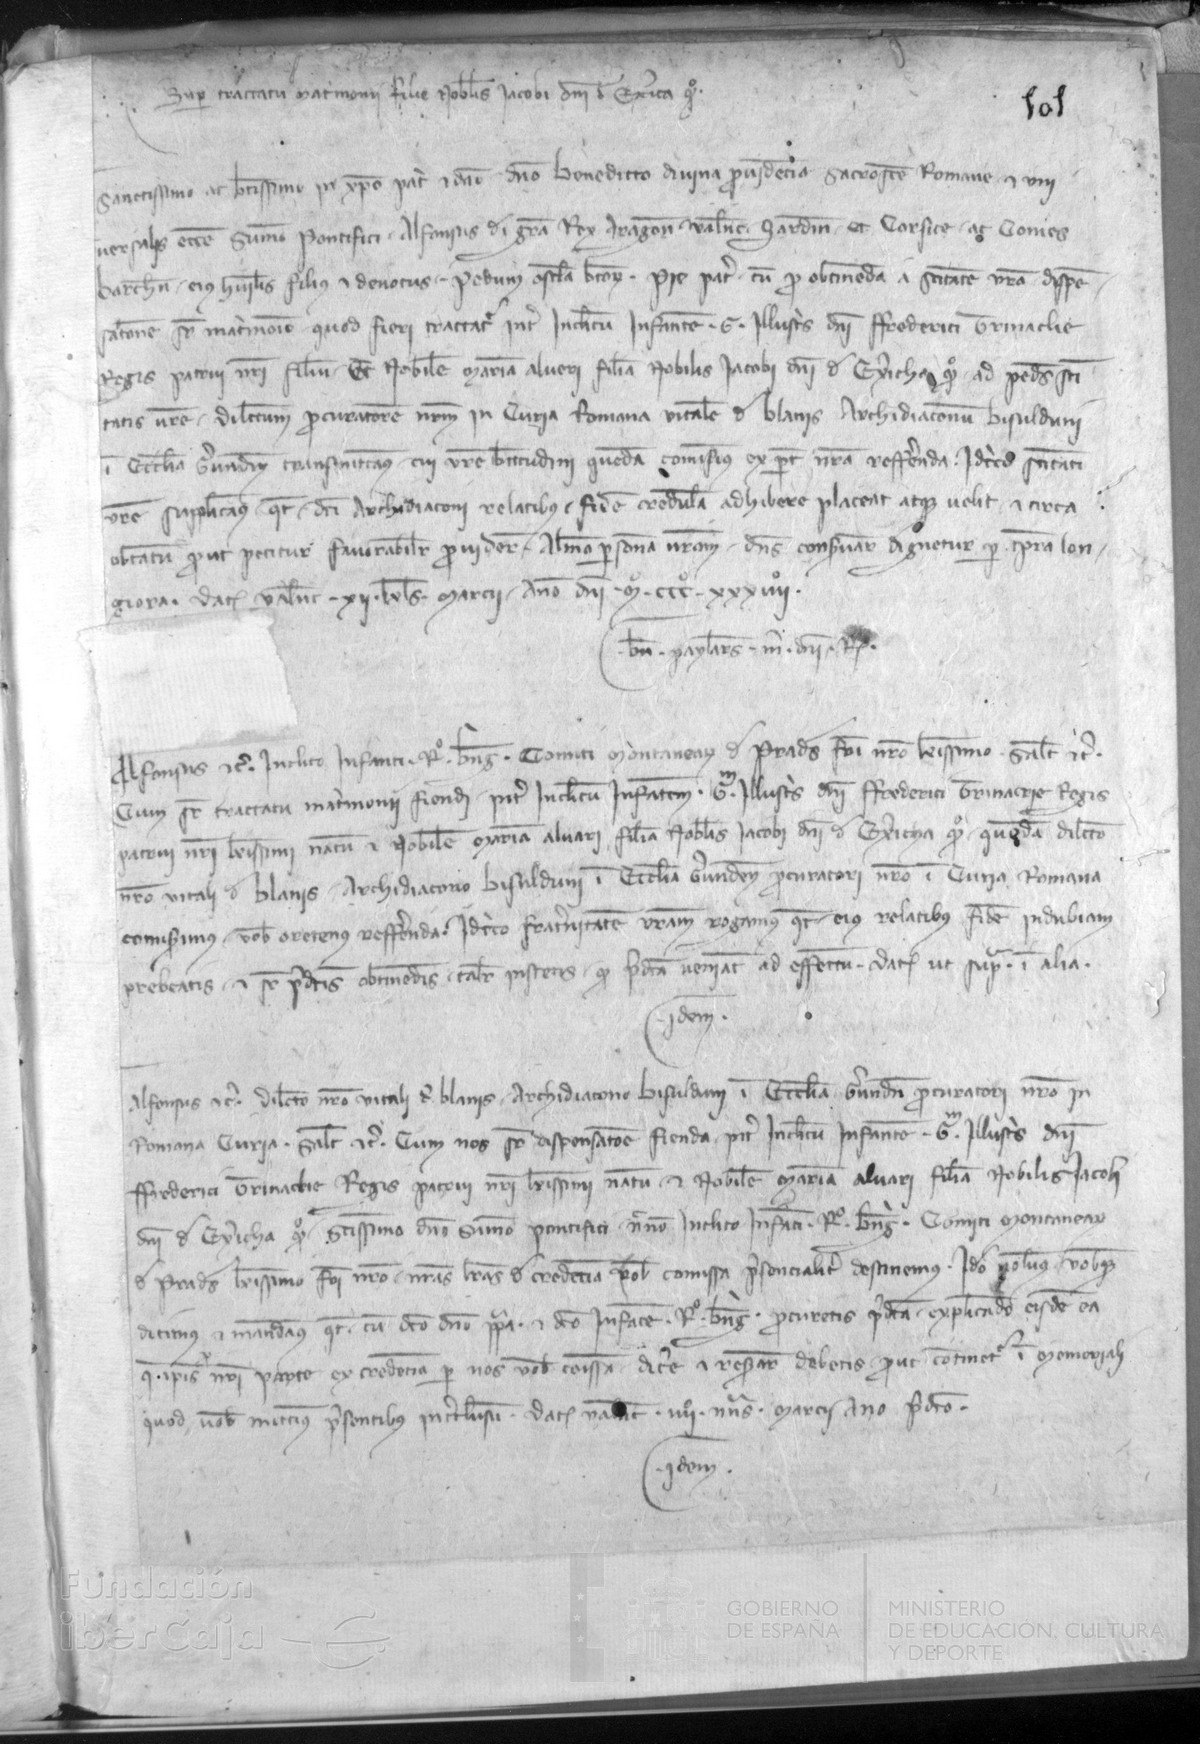 Sup tractatu matimonii filie Nobilis Jacobi dni d Exerica qo.
101
Sanctissimo ac btissimo in xpo patri & dno dno Benedicto divina providencia sacrosce Romane & uni
versalis ecce Summo Pontifici Alfonsus di gra Rex Aragon Valenc Sardin et Corsice ac Comes
Barchn eius humilis filius & devotus Pedum oscla btor. Pie pater cum pro obtinenda a sctitate vra dispe
satone sr matimoio quod fieri tractatr intr Inclitu Infante G. Illustris dni Frederici Trinaclie
Regis patrui nri filiu Et Nobile Maria Alveri filia Nobilis Jacobi dni d Exericha qo ad pedes scti
tatis vre dilectum procuratore nrm in Curia Romana Vitale d Blanis Archidiaconu Bisuldunii
i Ecclia Gerunden transmittamus cui vre btitudini queda comisimus ex pte nra refferenda. Idcirco sctitati
vre supplicamus qt dci Archidiaconi relatibus fide credula adhibere placeat atque velit & circa
obtatu prout petitur favorabilr provider. Almo persona vram dns conservar dignetur p tpora lon
giora. Dat Valenc XII kls Marcii Ano dni Mo CCCo XXXIIIIo.
bn. paylars m. dni R.
Alfonsus &c. Inclito Infanti Ro. Beng. Comiti Montanear d Prads fri nro krissimo Salt &c.
Cum sr tractatu matimonii fiendi intr Inclitu Infantem Gm. Illustris dni Frederici Trinacrie Regis
patrui nri krissimi natu & Nobile Maria Alvari filia Nobilis Jacobi dni d Exericha qo queda dilecto
nro Vitali d Blanis Archidiacono Bisuldunii i Ecclia Gerunden procuratori nro i Curia Romana
comisimus vob oretenus refferenda. Idcirco fraternitatem vram rogamus qt eius relatibus fide indubiam
prebeatis & sr predcis obtinendis talr instetis qo predca veniat ad effectu. Dat ut supra i alia.
Idem.
Alfonsus &c. dilecto nro Vitali d Blanis Archidiacono Bisuldunii i Ecclia Gerunden procuratori nro in
Romana Curia. Salt &c. Cum nos sr dispensatoe fienda intr Inclitu Infante Gm. Illustris dni
Frederici Trinaclie Regis patrui nri krissimi natu & Nobile Maria Alvari filia Nobilis Jacobi
dni d Exericha qo Sctissimo dno Summo pontifici necnon Inclito Infanti Ro. Beng. Comiti Montanear
d Prads krissimo fri nro nras lras d credecia vob comissa presencialitr destinemus. Ido volumus vobque
dicimus & mandamus qt cu dco dno ppa & dco Infante Ro. Beng. procuretis predca explicando eisde ea
q ipis nri parte ex credecia p nos vob comissa dicere & reserar debetis prout continetr i memoriali
quod vob mittimus presentibus interclusu. Dat Valenc IIII nns Marcii Ano predco.
Idem.
Fundación
iberCaja
GOBIERNO
DE ESPAÑA
MINISTERIO
DE EDUCACIÓN, CULTURA
Y DEPORTE